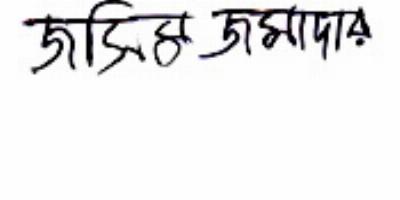 জসিম জমাদার